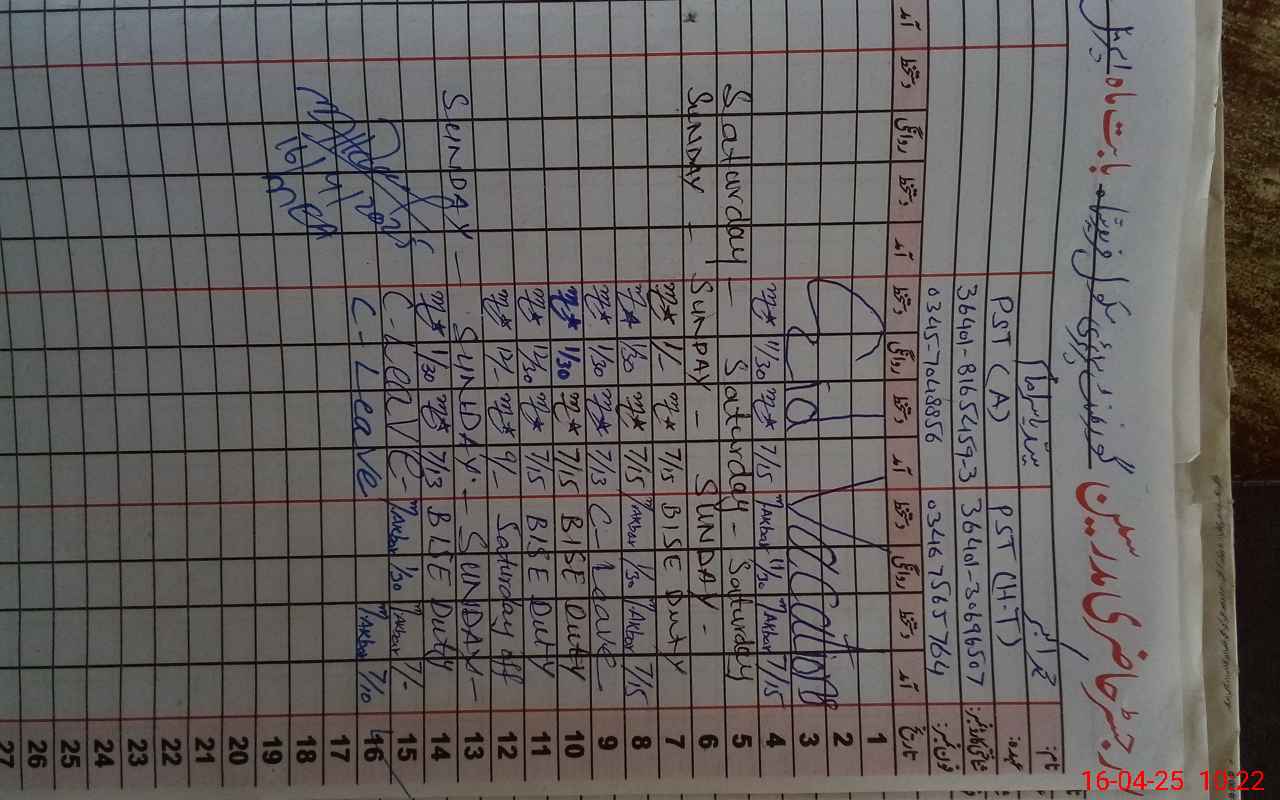 رجسٹر حاضری مدرسین گورنمنٹ پرائمری سکول بابت ماہ اپریل
نام:
محمد اکبر
عہدہ:
PST (A) PST (H-T)
شناختی کارڈ نمبر:
36401-8165459-3 36401-30696507
فون نمبر:
0345-7048856 0346 7565764
تاریخ آمد دستخط روانگی دستخط آمد دستخط روانگی دستخط آمد دستخط روانگی دستخط آمد
1
2
Eid Vacations 3
11/30 7/15 M Akbar 11/30 M Akbar 7/15 4
Saturday - Saturday - Saturday 5
SUNDAY - SUNDAY - SUNDAY - 6
1/- 7/15 BISE Duty 7
1/30 7/15 M Akbar 1/30 M Akbar 7/15 8
1/30 7/13 C - Leave - 9
1/30 7/15 BISE Duty 10
12/30 7/15 BISE Duty 11
12/- 9/- Saturday off 12
SUNDAY - SUNDAY - SUNDAY - 13
1/30 7/13 BISE Duty 14
C - Leave - M Akbar 1/30 M Akbar 7/- 15
C - Leave M Akbar 7/10 16
17
16/4/2025
18
19
20
21
22
23
24
25
26
27
16-04-25 10:22